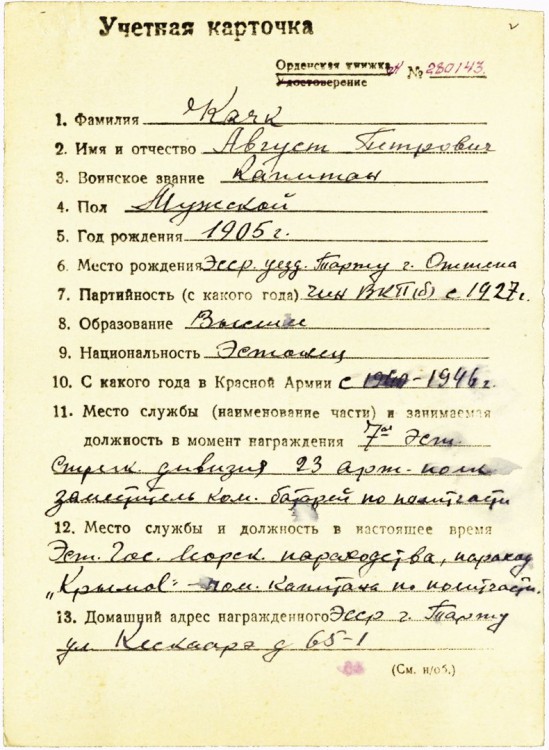 Учетная карточка
Орденская книжка № 280143
Удостоверение
1. Фамилия Каск
2. Имя и отчество Август Петрович
3. Воинское звание Капитан
4. Пол Мужской
5. Год рождения 1905 г.
6. Место рождения Эсср. уезд. Тарту г. Отепя
7. Партийность (с какого года) член ВКП(б) с 1927 г.
8. Образование Высшее
9. Национальность Эстонец
10. С какого года в Красной Армии с - 1946 г.
11. Место службы (наименование части) и занимаемая
должность в момент награждения 7ая Эст.
Стрелк. дивизия 23 арт. полк
заместитель ком. батареи по политчасти
12. Место службы и должность в настоящее время
Эст. Гос. Морск. пароходства, пароход
"Крымов" - пом. капитана по политчасти.
13. Домашний адрес награжденного Эсср г. Тарту
ул. д 65-1
(См. н/об.)